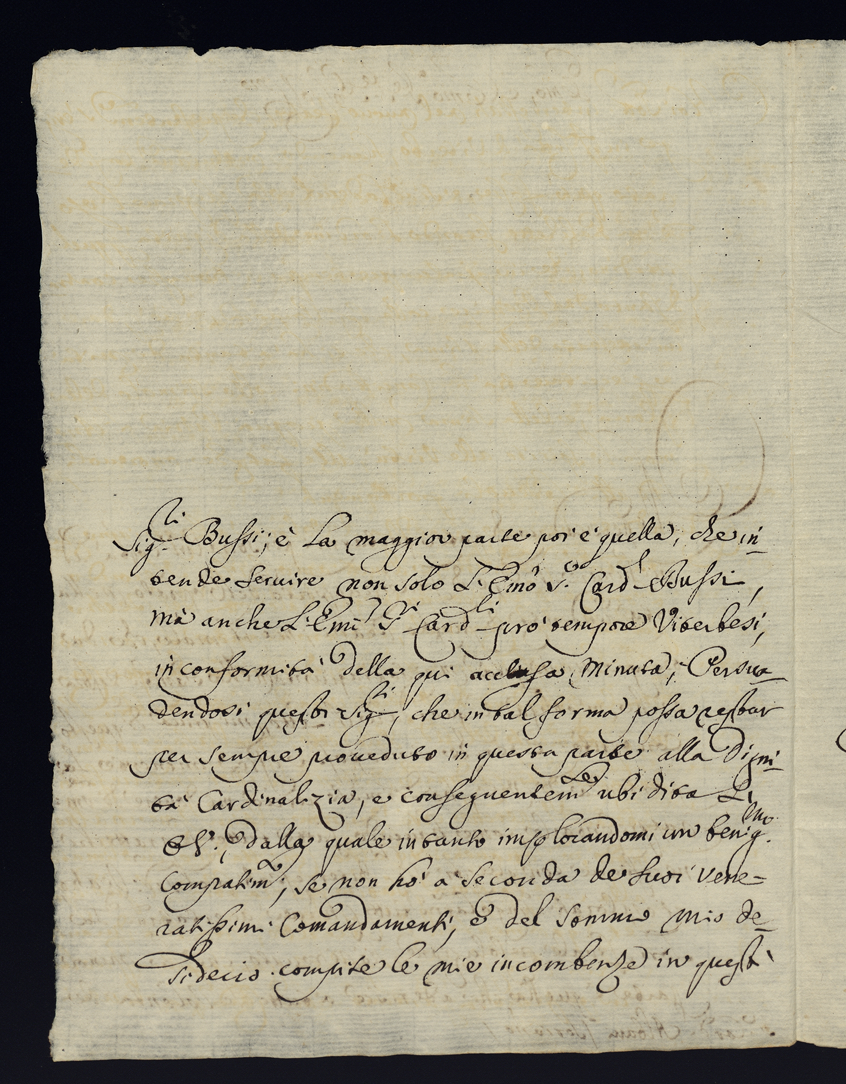 Sig.ri Bussi; è La maggior parte poi è quella, che in-
tende servire non solo L'Emo S.r Card.l Bussi,
mà anche L'Emi S.ri Card.li prò tempore Viterbesi,
in conformità della qui acclusa Minuta; Persua-
dendosi questi Sig.ri, che in tal forma possa restar
per sempre proveduto in questa parte alla Digni-
tà Cardinalizia, e conseguentem.te ubidita L'
dalla quale intanto implorandomi un benig.mo
Compatim.to, se non hò à seconda de suoi vene-
ratissimi Comandamenti, e del sommo mio de-
siderio compite le mie incombenze in questi